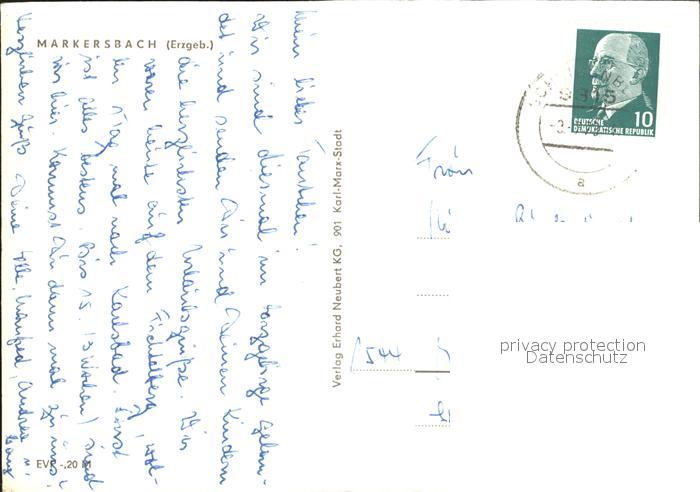 MARKERSBACH (Erzgeb.)
Mein liebes Tantchen!
Wir sind diesmal im Erzgebirge gelan-
det und senden Dir und Deinen Kindern
die herzlichsten Urlaubsgrüße. Wir
waren heute auf dem Fichtelberg, wol-
len Stag mal nach Karlsbad. Sonst
ist alles bestens. Bis 15. (3 Wochen) sind
wir hier. Kommst Du dann mal zu uns?
Herzlichen Gruß Deine Manfred, Andrea u.
EVP -,20 M
Verlag Erhard Neubert KG, 901 Karl-Marx-Stadt
9315
a
10
DEUTSCHE
DEMOKRATISCHE REPUBLIK
Frau
privacy protection
Datenschutz